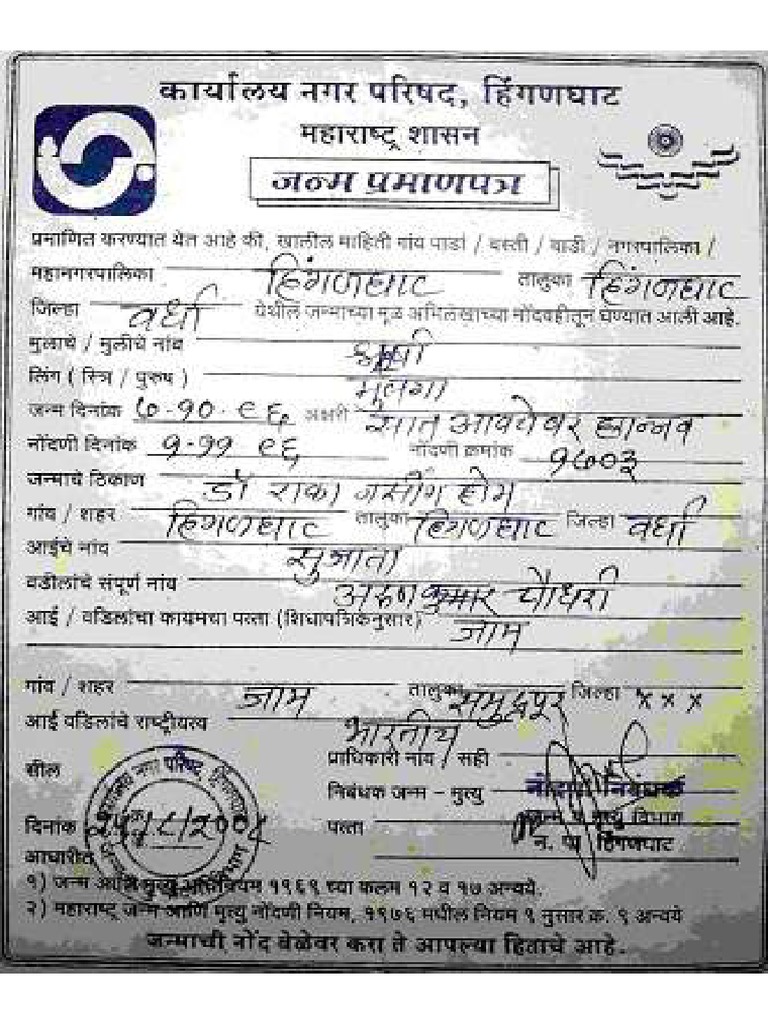 कार्यालय नगर परिषद, हिंगणघाट
महाराष्ट्र शासन
जन्म प्रमाणपत्र
प्रमाणित करण्यात येत आहे की, खालील माहिती गांय पाडा / वस्ती / वाडी / नगरपालिका /
महानगरपालिका हिंगणघाट तालुका हिंगणघाट
जिल्हा वर्धा येथील जन्माच्या मूळ अभिलेखाच्या नोंदवहीतून घेण्यात आली आहे.
मुलाचे / मुलीचे नांव
लिंग ( स्त्रि / पुरुष ) मुलगा
जन्म दिनांक ७-१०-९६ अक्षरी सात
नोंदणी दिनांक १-११ ९६ नोंदणी क्रमांक १७०३
जन्माचे ठिकाण डॉ राका नर्सींग होम
गांव / शहर हिंगणघाट तालुका हिंगणघाट जिल्हा वर्धा
आईचे नांव सुजाता
वडीलांचे संपूर्ण नांव अरुणकुमार चौधरी
आई / वडिलांचा कायमचा पत्ता (शिधापत्रिकेनुसार) जाम
गांव / शहर जाम तालुका समुद्रपूर जिल्हा x x x
आई वडिलांचे राष्ट्रीयत्व भारतीय
प्राधिकारी नांय / सही
सील
निबंधक जन्म - मृत्यु निबंधक
दिनांक पत्ता जन्म व मृत्यु विभाग
न. प. हिंगणघाट
आधारीत
१) जन्म आणि मृत्यु अधिनियम १९६९ च्या कलम १२ व १७ अन्वये.
२) महाराष्ट्र जन्म आणि मृत्यु नोंदणी नियम, १९७६ मधील नियम ९ नुसार क्र. ९ अन्वये
जन्माची नोंद वेळेवर करा ते आपल्या हिताचे आहे.